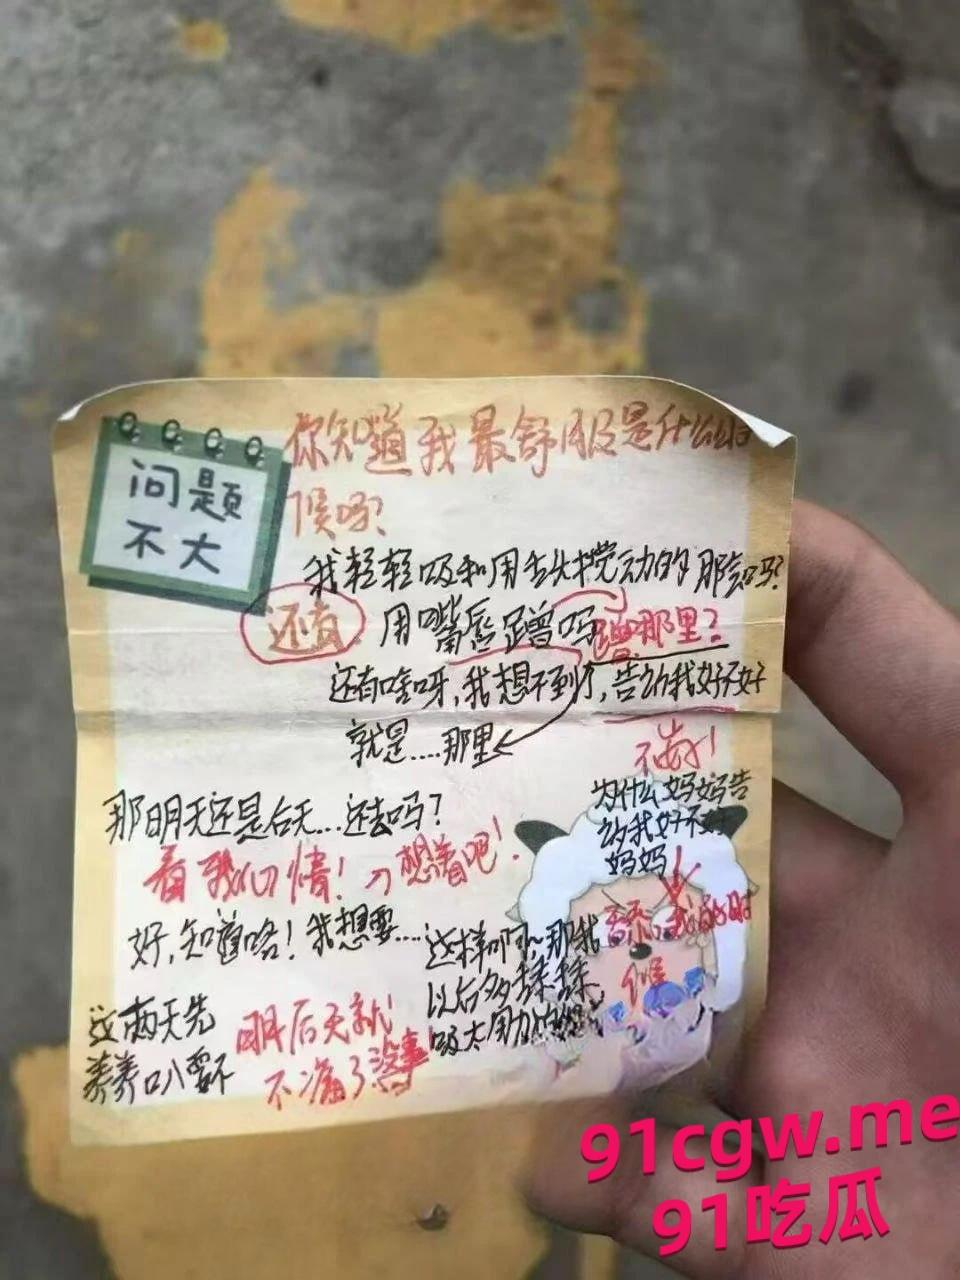 问题
不大
你知道我最舒服是什么时
候呀?
我轻轻吸和用舌头搅动的那会吗?
还有 用嘴唇蹭吗 蹭那里?
还有啥呀,我想不到了,告诉我好不好
就是....那里
不告!
为什么妈妈告
诉我好不好
妈妈
舔 我的时
候
那明天还是后天...还去吗?
看我心情!
想着吧!
好,知道咯!我想要....
这样啊~那我
以后多揉揉
吸太用力
这两天先
养养
明后天就
不痛了没事
91cgw.me
91吃瓜